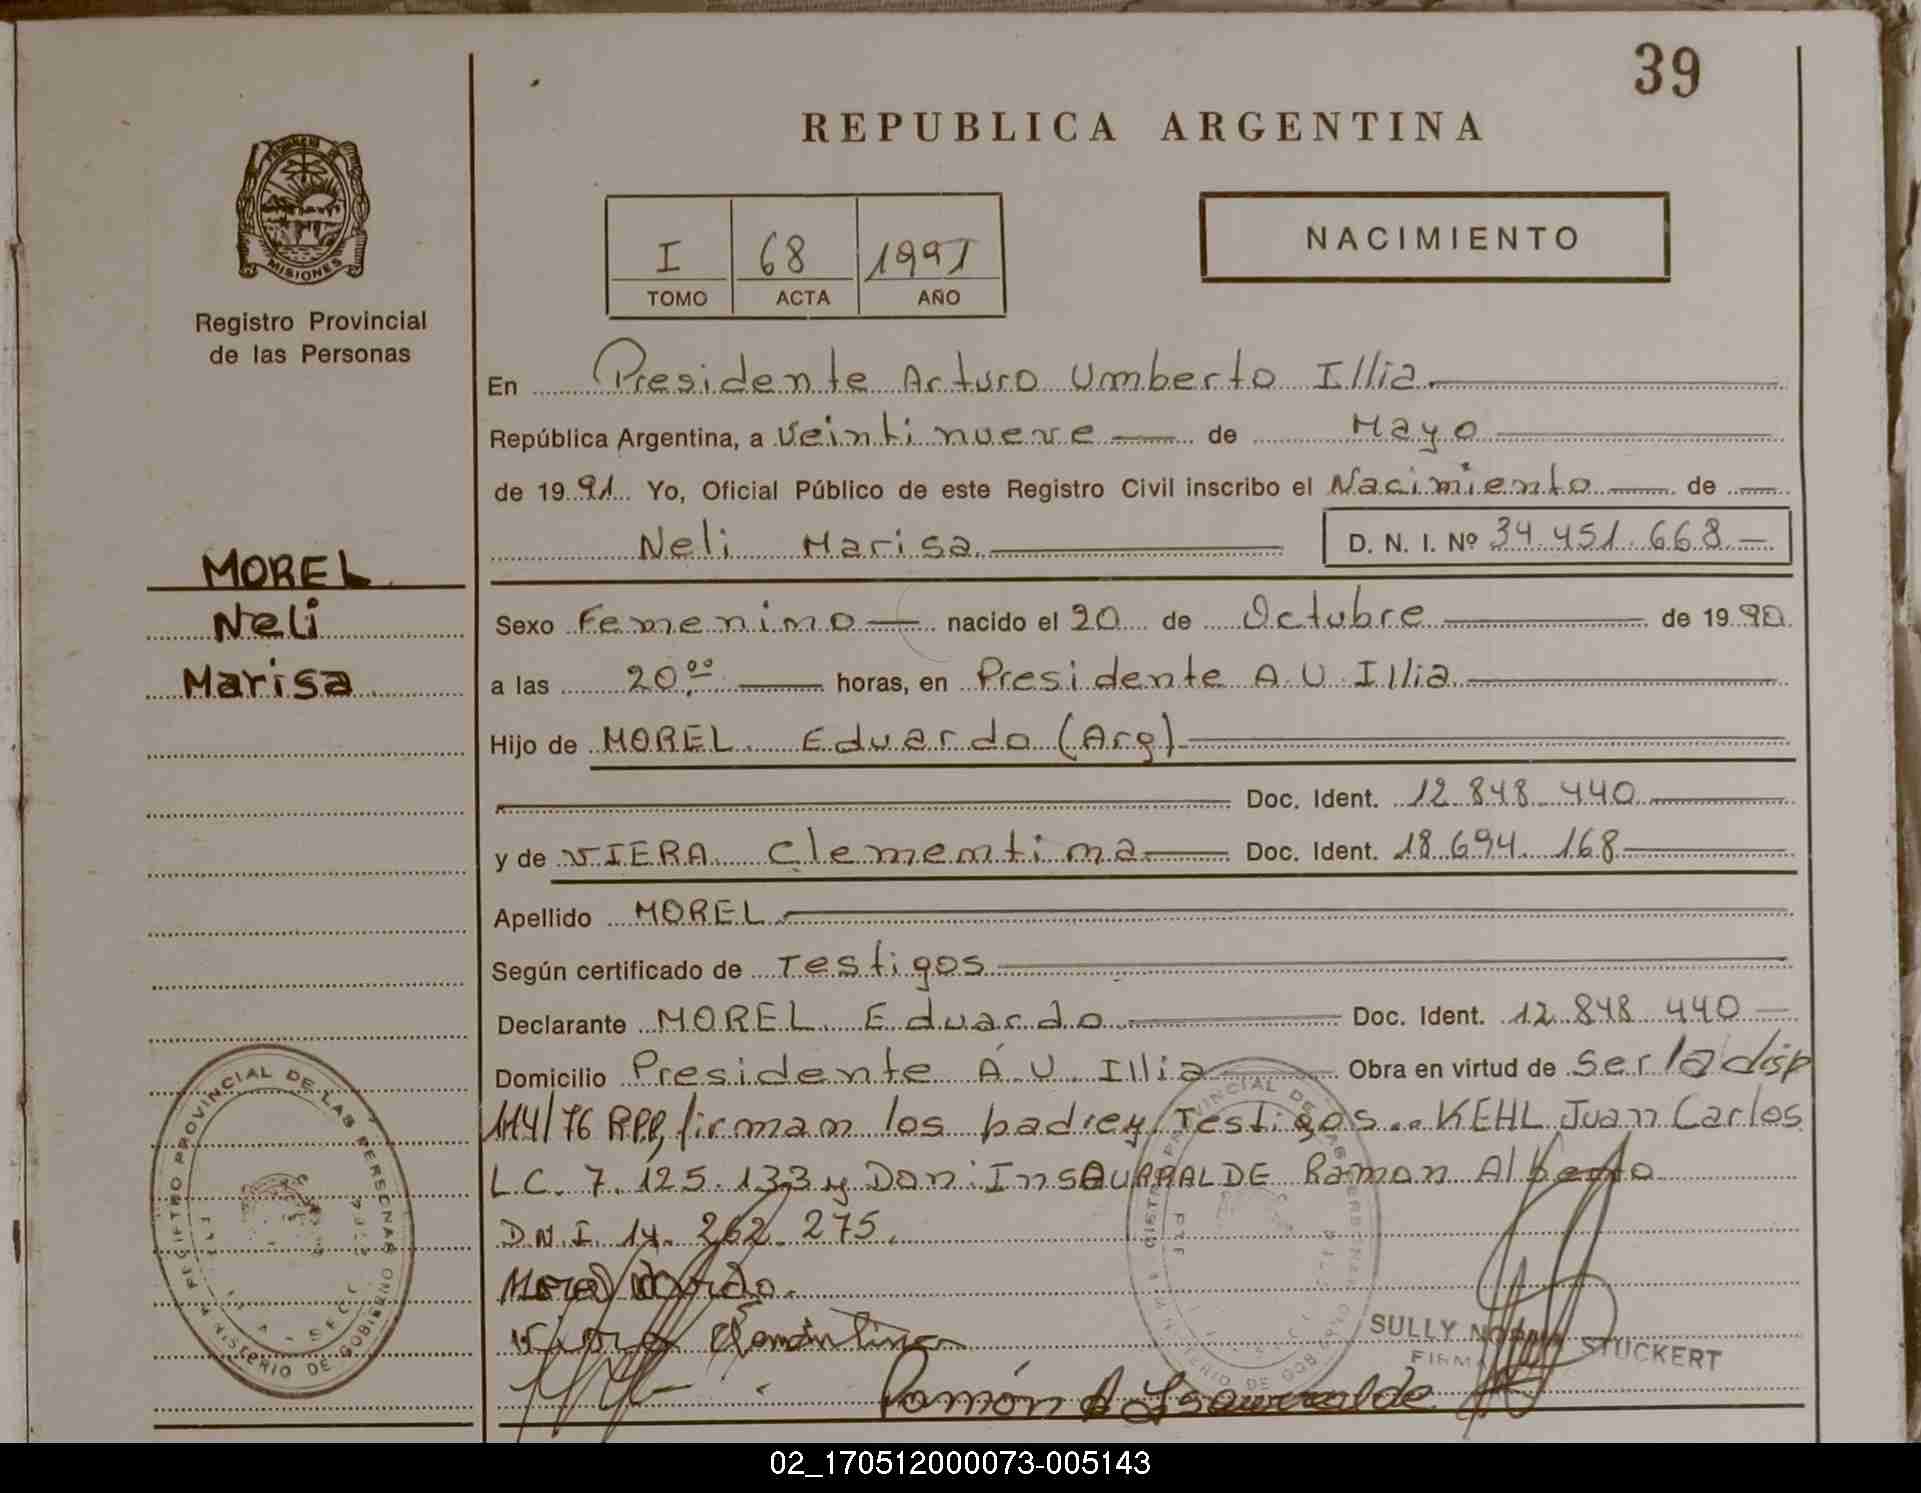 39
REPUBLICA ARGENTINA
MISIONES
Registro Provincial
de las Personas
I 68 1991
TOMO ACTA AÑO
NACIMIENTO
En Presidente Arturo Umberto Illia
República Argentina, a veintinueve de Mayo
de 1991 Yo, Oficial Público de este Registro Civil inscribo el Nacimiento de
Neli Marisa D. N. I. Nº 34.451.668
MOREL
Neli
Marisa
Sexo Femenino nacido el 20 de Octubre de 1990
a las 20.00 horas, en Presidente A U Illia
Hijo de MOREL Eduardo (Arg)
Doc. Ident. 12 848 440
y de VIERA Clementina Doc. Ident. 18 694 168
Apellido MOREL
Según certificado de Testigos
Declarante MOREL Eduardo Doc. Ident. 12 848 440
Domicilio Presidente A. U. Illia Obra en virtud de ser la disp
114/76 RPP, firman los padres y Testigos.. KEHL Juan Carlos
L.C. 7.125.133 y Don: InsAURRALDE Ramon Alberto
D.N.I. 14.262.275.
Clementina
SULLY NORMA STUCKERT
FIRMA
Ramón A
REGISTRO PROVINCIAL DE LAS PERSONAS
MINISTERIO DE GOBIERNO
02_170512000073-005143